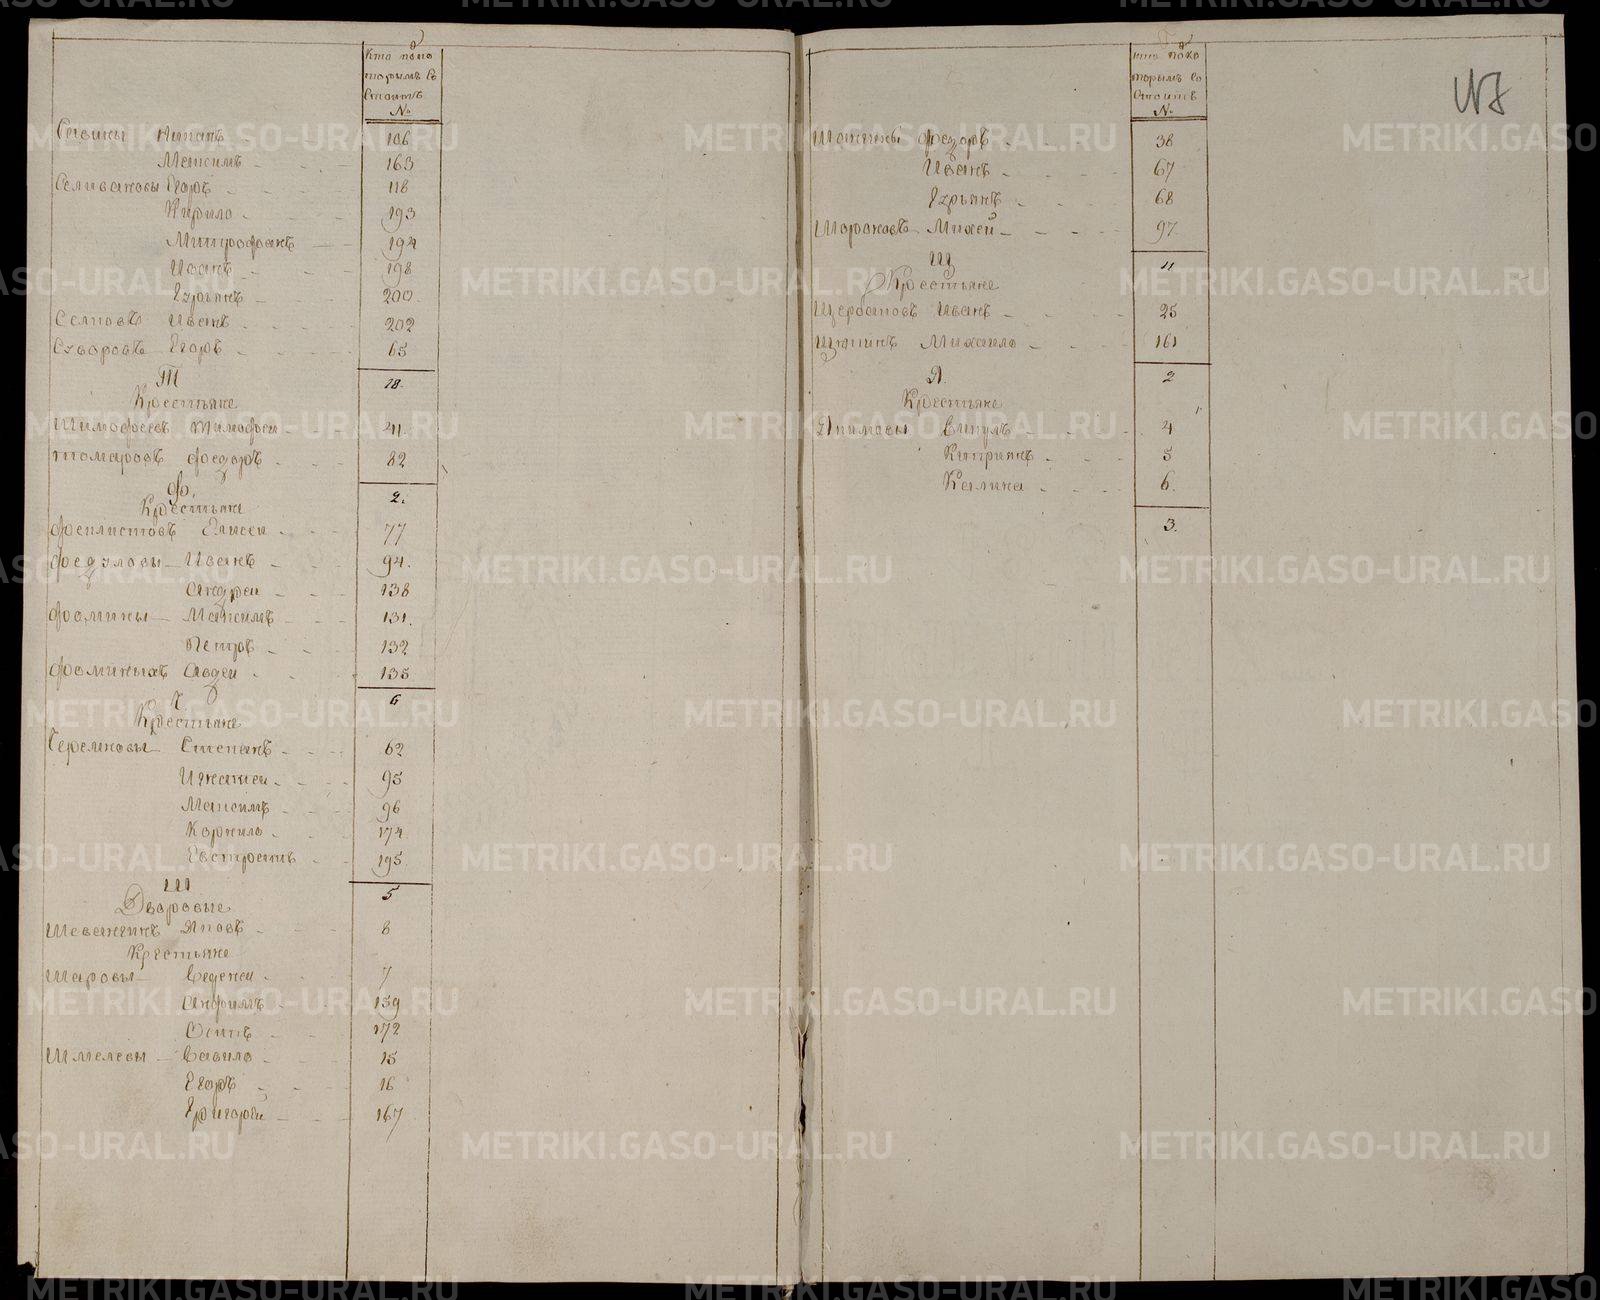 Кто подко
торымъ Со
Стоитъ
№
Савины Антипъ 106
Максимъ 163
Селивановы Егоръ 118
Кирило 193
Митрофанъ 194
Иванъ 198
Гурьянъ 200
Иванъ 202
Суворовъ Егоръ 65
Т
18.
Крестьяне
Тимофеевъ Тимофеи 41.
Томаровъ Федоръ 82
Ф.
2.
Крестьяне
Феклистовъ Елисеи 77
Федуловы Иванъ 94.
Андреи 138
Фомины Максимъ 131.
Петръ 132
Фоминыхъ Авдеи 135
Ч.
6
Крестьяне
Степанъ 62
95
Максимъ 96
Корнило 174
Евстратъ 195
Ш
5
Дворовые
Яковъ 8
Крестьяне
Шаровы 7
159
Осипъ 172
Шмелевы Вавило 15
Егоръ 16
Григорей 167
Кто подко
торымъ Со
Стоитъ
№
Федоръ 38
Иванъ 67
Гурьянъ 68
Михей 97
Щ
11
Крестьяне
Щербаковъ Иванъ 25
Михаило 161
Я.
2
Крестьяне
Якимовы Викулъ 4
Киприянъ 5
Калина 6.
3.
METRIKI.GASO-URAL.RU